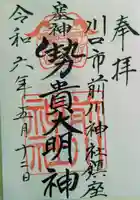 奉拝
川口市前川神社鎮座
産神
勢貴大明神
令和六年五月十二日